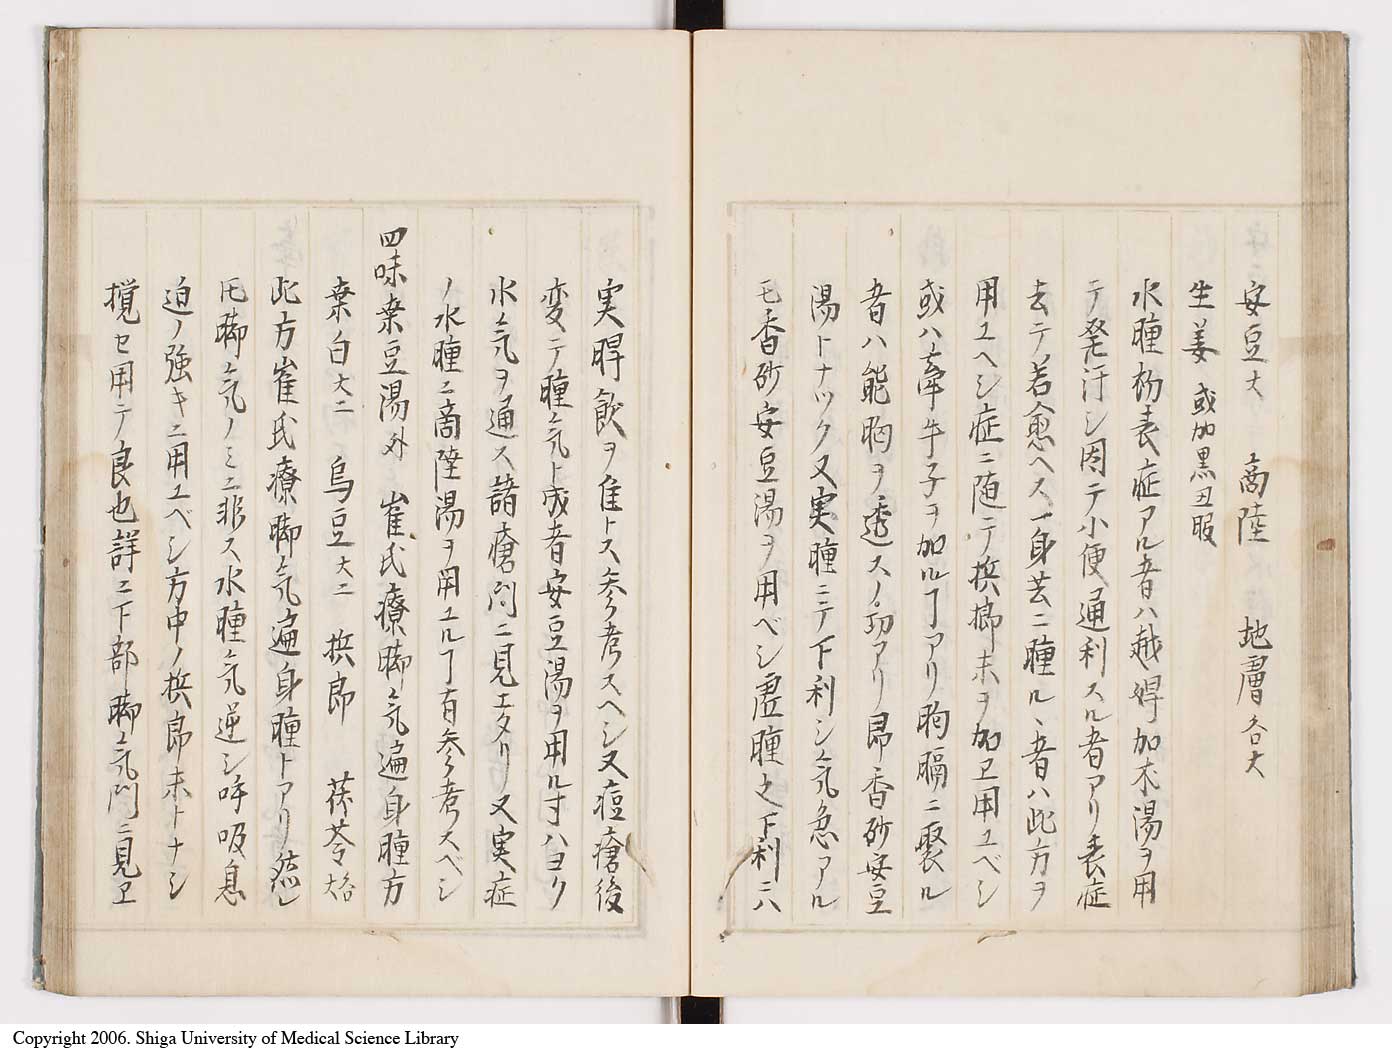 安豆大　商陸　地膚各大
生姜　或加黒丑服
水腫初表症アル者ハ越婢加朮湯ヲ用
テ発汗シ因テ小便通利スル者アリ表症
去テ若愈ヘス一身共ニ腫ルヽ者ハ此方ヲ
用ユヘシ症ニ随テ梹榔末ヲ加ヱ用ユベシ
或ハ牽牛子ヲ加ルヿアリ胸膈ニ聚ル
者ハ能胸ヲ透スノ功アリ昂香砂安豆
湯トナツク又実腫ニテ下利シ気急アル
モ香砂安豆湯ヲ用ベシ虚腫之下利ニハ
実脾飲ヲ隹トス参考スヘシ又痘瘡後
変テ腫気ト成者安豆湯ヲ用ル寸ハヨク
水気ヲ通ス諸瘡門ニ見エタリ又実症
ノ水腫ニ商陸湯ヲ用ユルヿ有参考スベシ
四味桒豆湯外　崔氏療脚気遍身腫方
桒白大二　烏豆大二　梹郎　茯苓各大
此方崔氏療脚気遍身腫トアリ然レ
𪜈脚気ノミニ非ス水腫気逆シ呼吸息
迫ノ強キニ用ユベシ方中ノ梹郎末トナシ
攪セ用テ良也詳ニ下部脚気門ニ見ヱ
Copyright 2006. Shiga University of Medical Science Library